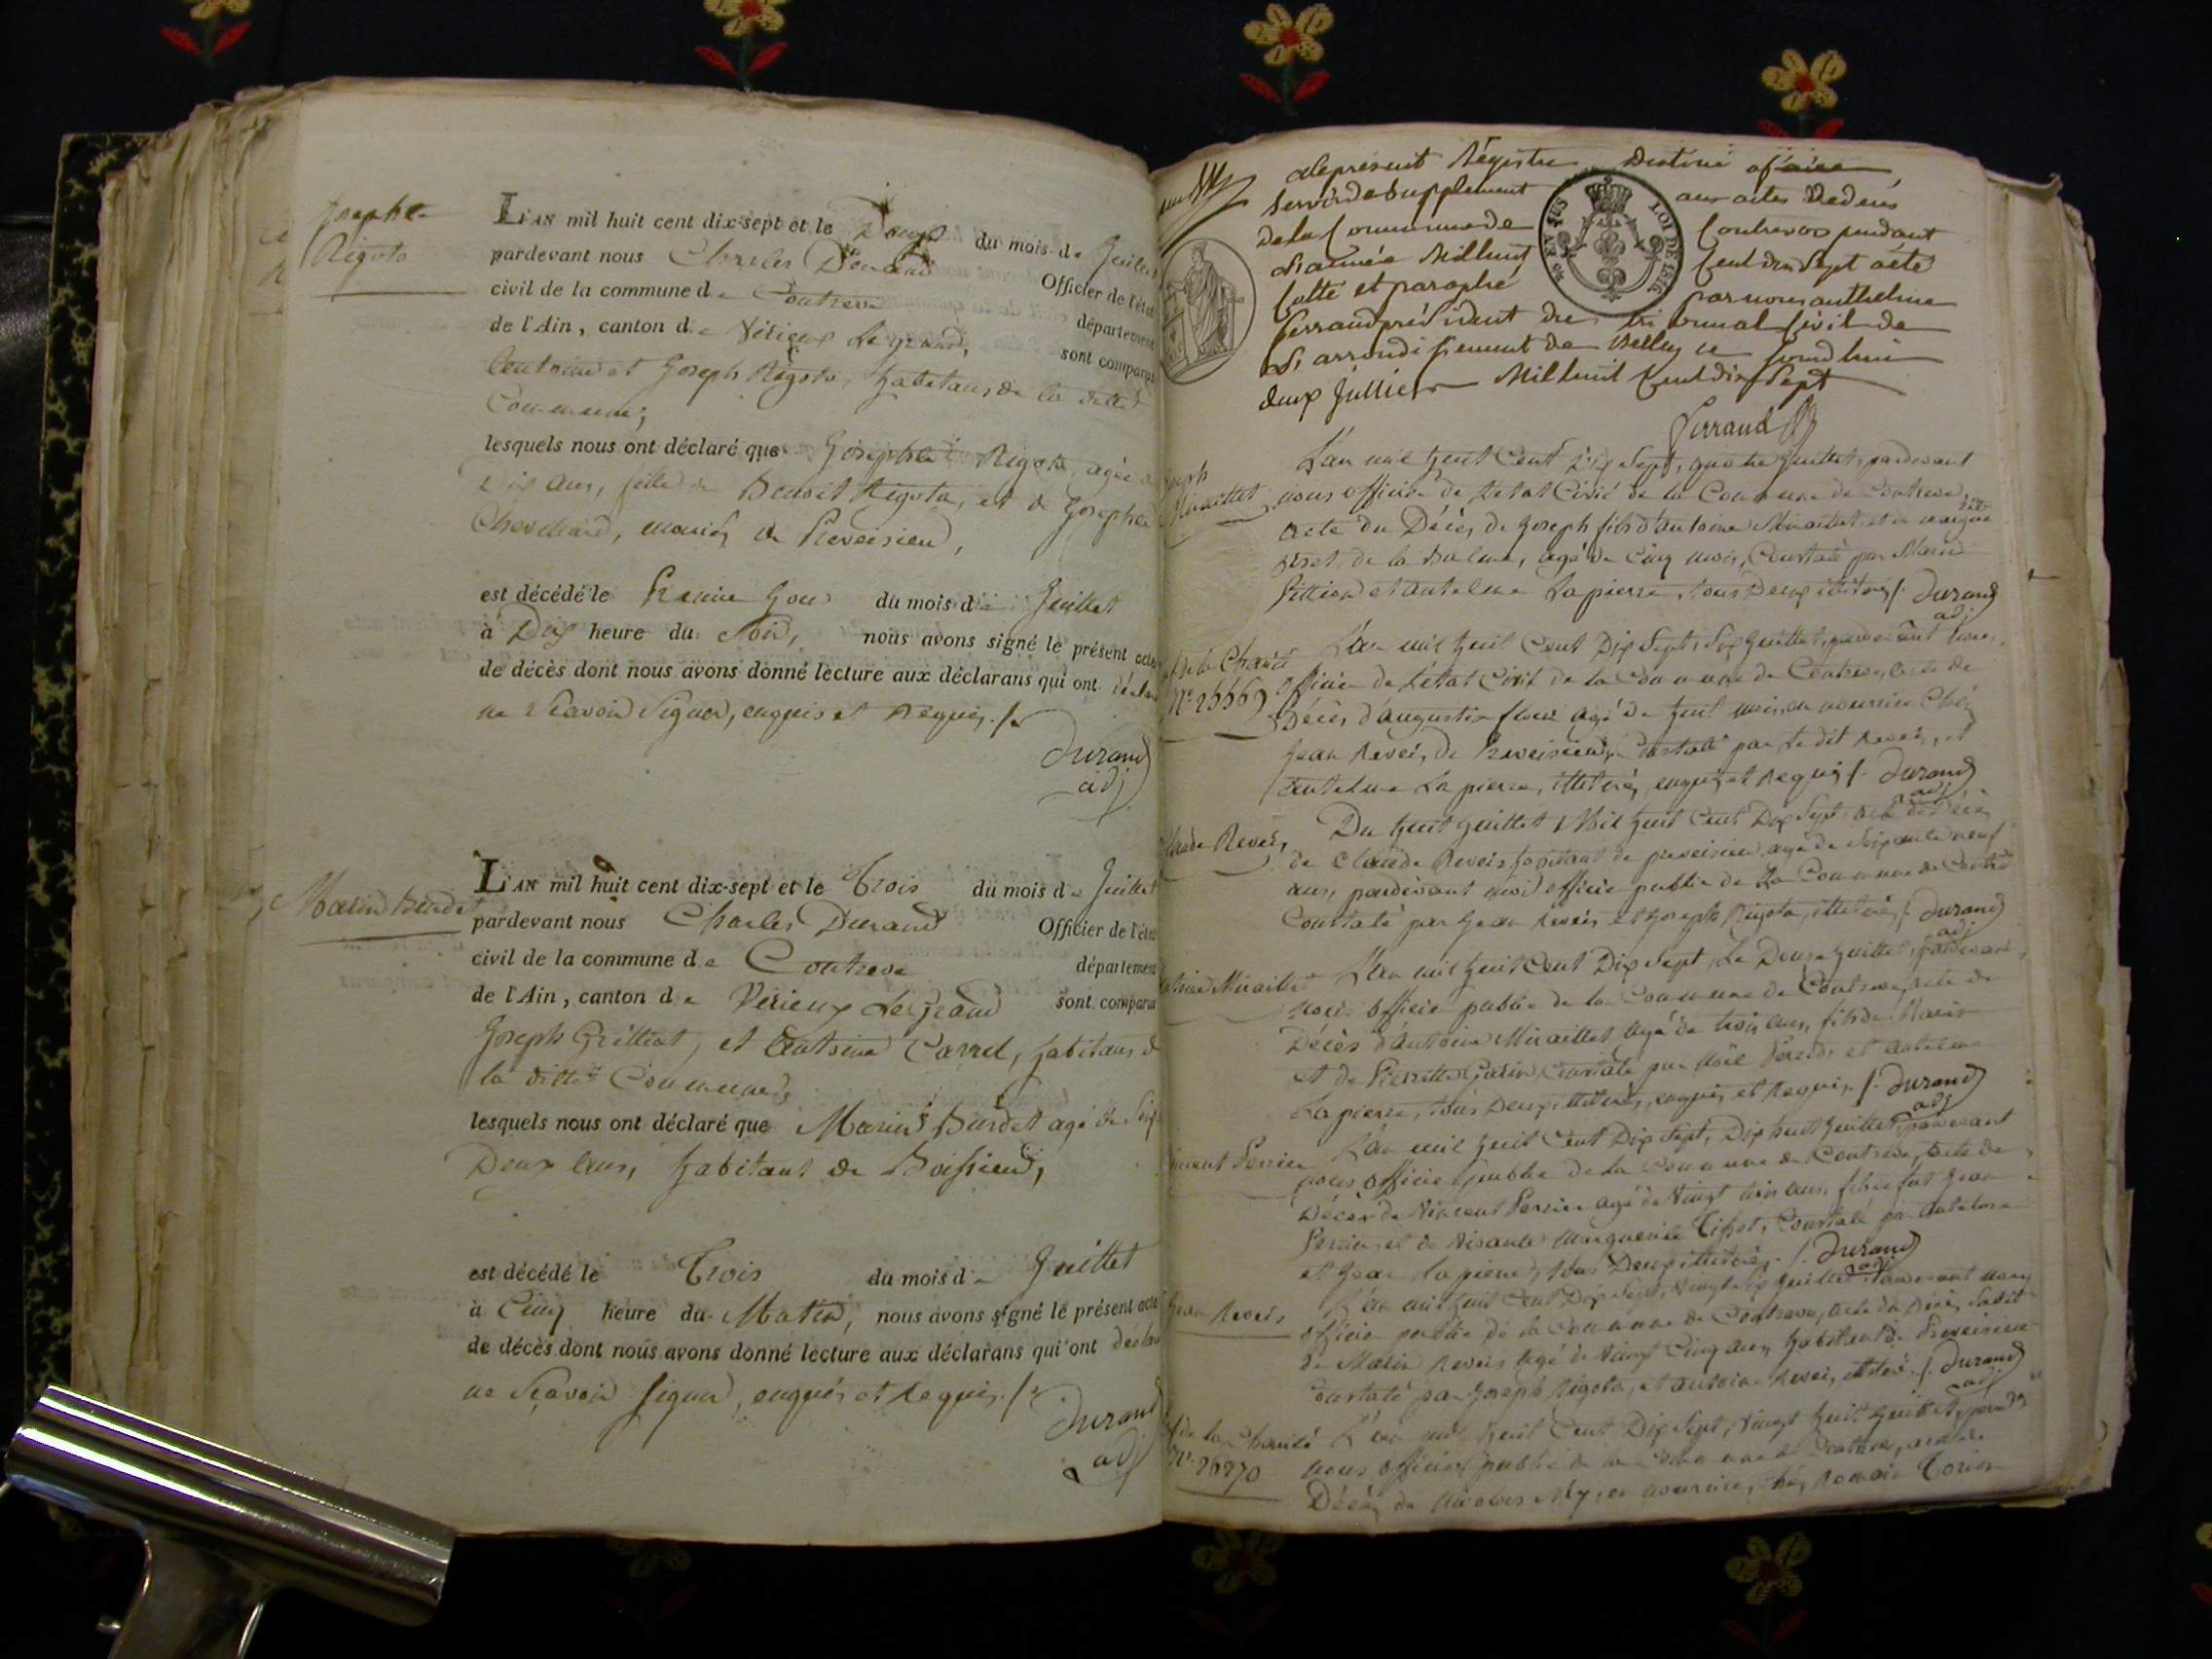 Josephte
Rigota
L'AN mil huit cent dix-sept et le Deux du mois de Juillet
pardevant nous Charles Durand Officier de l'état
civil de la commune de Contrevo département
de l'Ain, canton de Virieux Le grand, sont comparus
et Joseph Rigota, habitans de la ditte
Commune;
lesquels nous ont déclaré que Josephte Rigota, agée de
Dix ans, fille de Benoit Rigota, et de Josephte
mariés de Preveisieu,
est décédé le Premier Jour du mois de Juillet
à Dix heure du Soir, nous avons signé le présent acte
de décès dont nous avons donné lecture aux déclarans qui ont déclaré
ne Scavoir Signer, enquis et Requis ./.
Durand
adj
Marin Burdet
L'AN mil huit cent dix-sept et le Trois du mois de Juillet
pardevant nous Charles Durand Officier de l'état
civil de la commune de Contrevo département
de l'Ain, canton de Virieux Le Grand sont comparus
Joseph Grilliot, et Antoine Carrel, habitans de
la ditte Commune,
lesquels nous ont déclaré que Marin Burdet agé de
Deux ans, habitant de Boissieu,
est décédé le Trois du mois de Juillet
à Cinq heure du Matin, nous avons signé le présent acte
de décès dont nous avons donné lecture aux déclarans qui ont déclaré
ne Scavoir signer, enquis et Requis ./.
Durand
adj
Le présent Régistre Destiné a faire
Servir de Supplement aux actes De décès
De la Commune de Contrevoz pendant
L'année Mil huit Cent dix Sept a été
Cotté et paraphé par nous anthelme
ferrand président du tribunal Civil de
L'arrondissement de Belley ce jourd'hui
deux Juillier Mil huit Cent dix Sept
Ferrand
25 EN SUS
LOI DE 1816
Joseph
Miraillet
L'an mil huit Cent Dix Sept, quatre Juillet, pardevant
nous officier de l'etat Civil de la Commune de Contrevo,
acte du Décès de Joseph fils d'antoine Miraillet et de
de la Balme, agé de Cinq mois, Constaté par Marin
et antelme Lapierre, tous Deux illiterés ./. Durand
adj
de la Charité
N° 25569
L'an mil huit Cent Dix Sept, Six Juillet, pardevant nous
officier de L'état Civil de la Commune de Contrevo, acte de
Décès d'augustin agé de huit mois, en nourrice Chés
Jean Reveis, de Preveisieu, Constaté par Le dit Reveis, et
antelme Lapierre, illiterés, enquis et Requis ./. Durand
adj
Claude Reveis,
Du huit Juillet Mil huit Cent Dix Sept acte de Décès
de Claude Reveis habitant de preveisieu, agé de Soixante neuf
ans, pardevant moi officier public de la Commune de Contrevo
Constaté par Jean Reveis et Joseph Rigota, illiterés ./. Durand
adj
Antoine Miraillet
L'an mil huit Cent Dix Sept, Le Douze Juillet, pardevant
nous officier public de la Commune de Contrevo, acte de
Décès d'Antoine Miraillet agé de trois ans, fils de Marin
et de Pierrette Constaté par et antelme
Lapierre, tous Deux illiterés, enquis et Requis ./. Durand
adj
Vincent Perrier
L'an mil huit Cent Dix Sept, Dix huit Juillet, pardevant
nous officier public de la Commune de Contrevo, acte de
Décès de Vincent Perrier agé de Vingt trois ans, fils de fut Jean
Perrier, et de vivante Marguerite Tissot, Constaté par antelme
et Jean Lapierre, tous Deux illiterés ./. Durand
adj
Jean Reveis
L'an mil huit Cent Dix Sept, Juillet pardevant nous
officier public de la Commune de Contrevo, acte du Décès
de Marin Reveis agé de Vingt Cinq ans, habitant de Preveisieu
Constaté par Joseph Rigota, et antoine Reveis, illiterés ./. Durand
adj
de la Charité
N° 26270
L'an mil huit Cent Dix Sept, Vingt huit Juillet, pardevant
nous officier public de la Commune de Contrevo, acte de
Décès de Nicolas en nourrice, chés